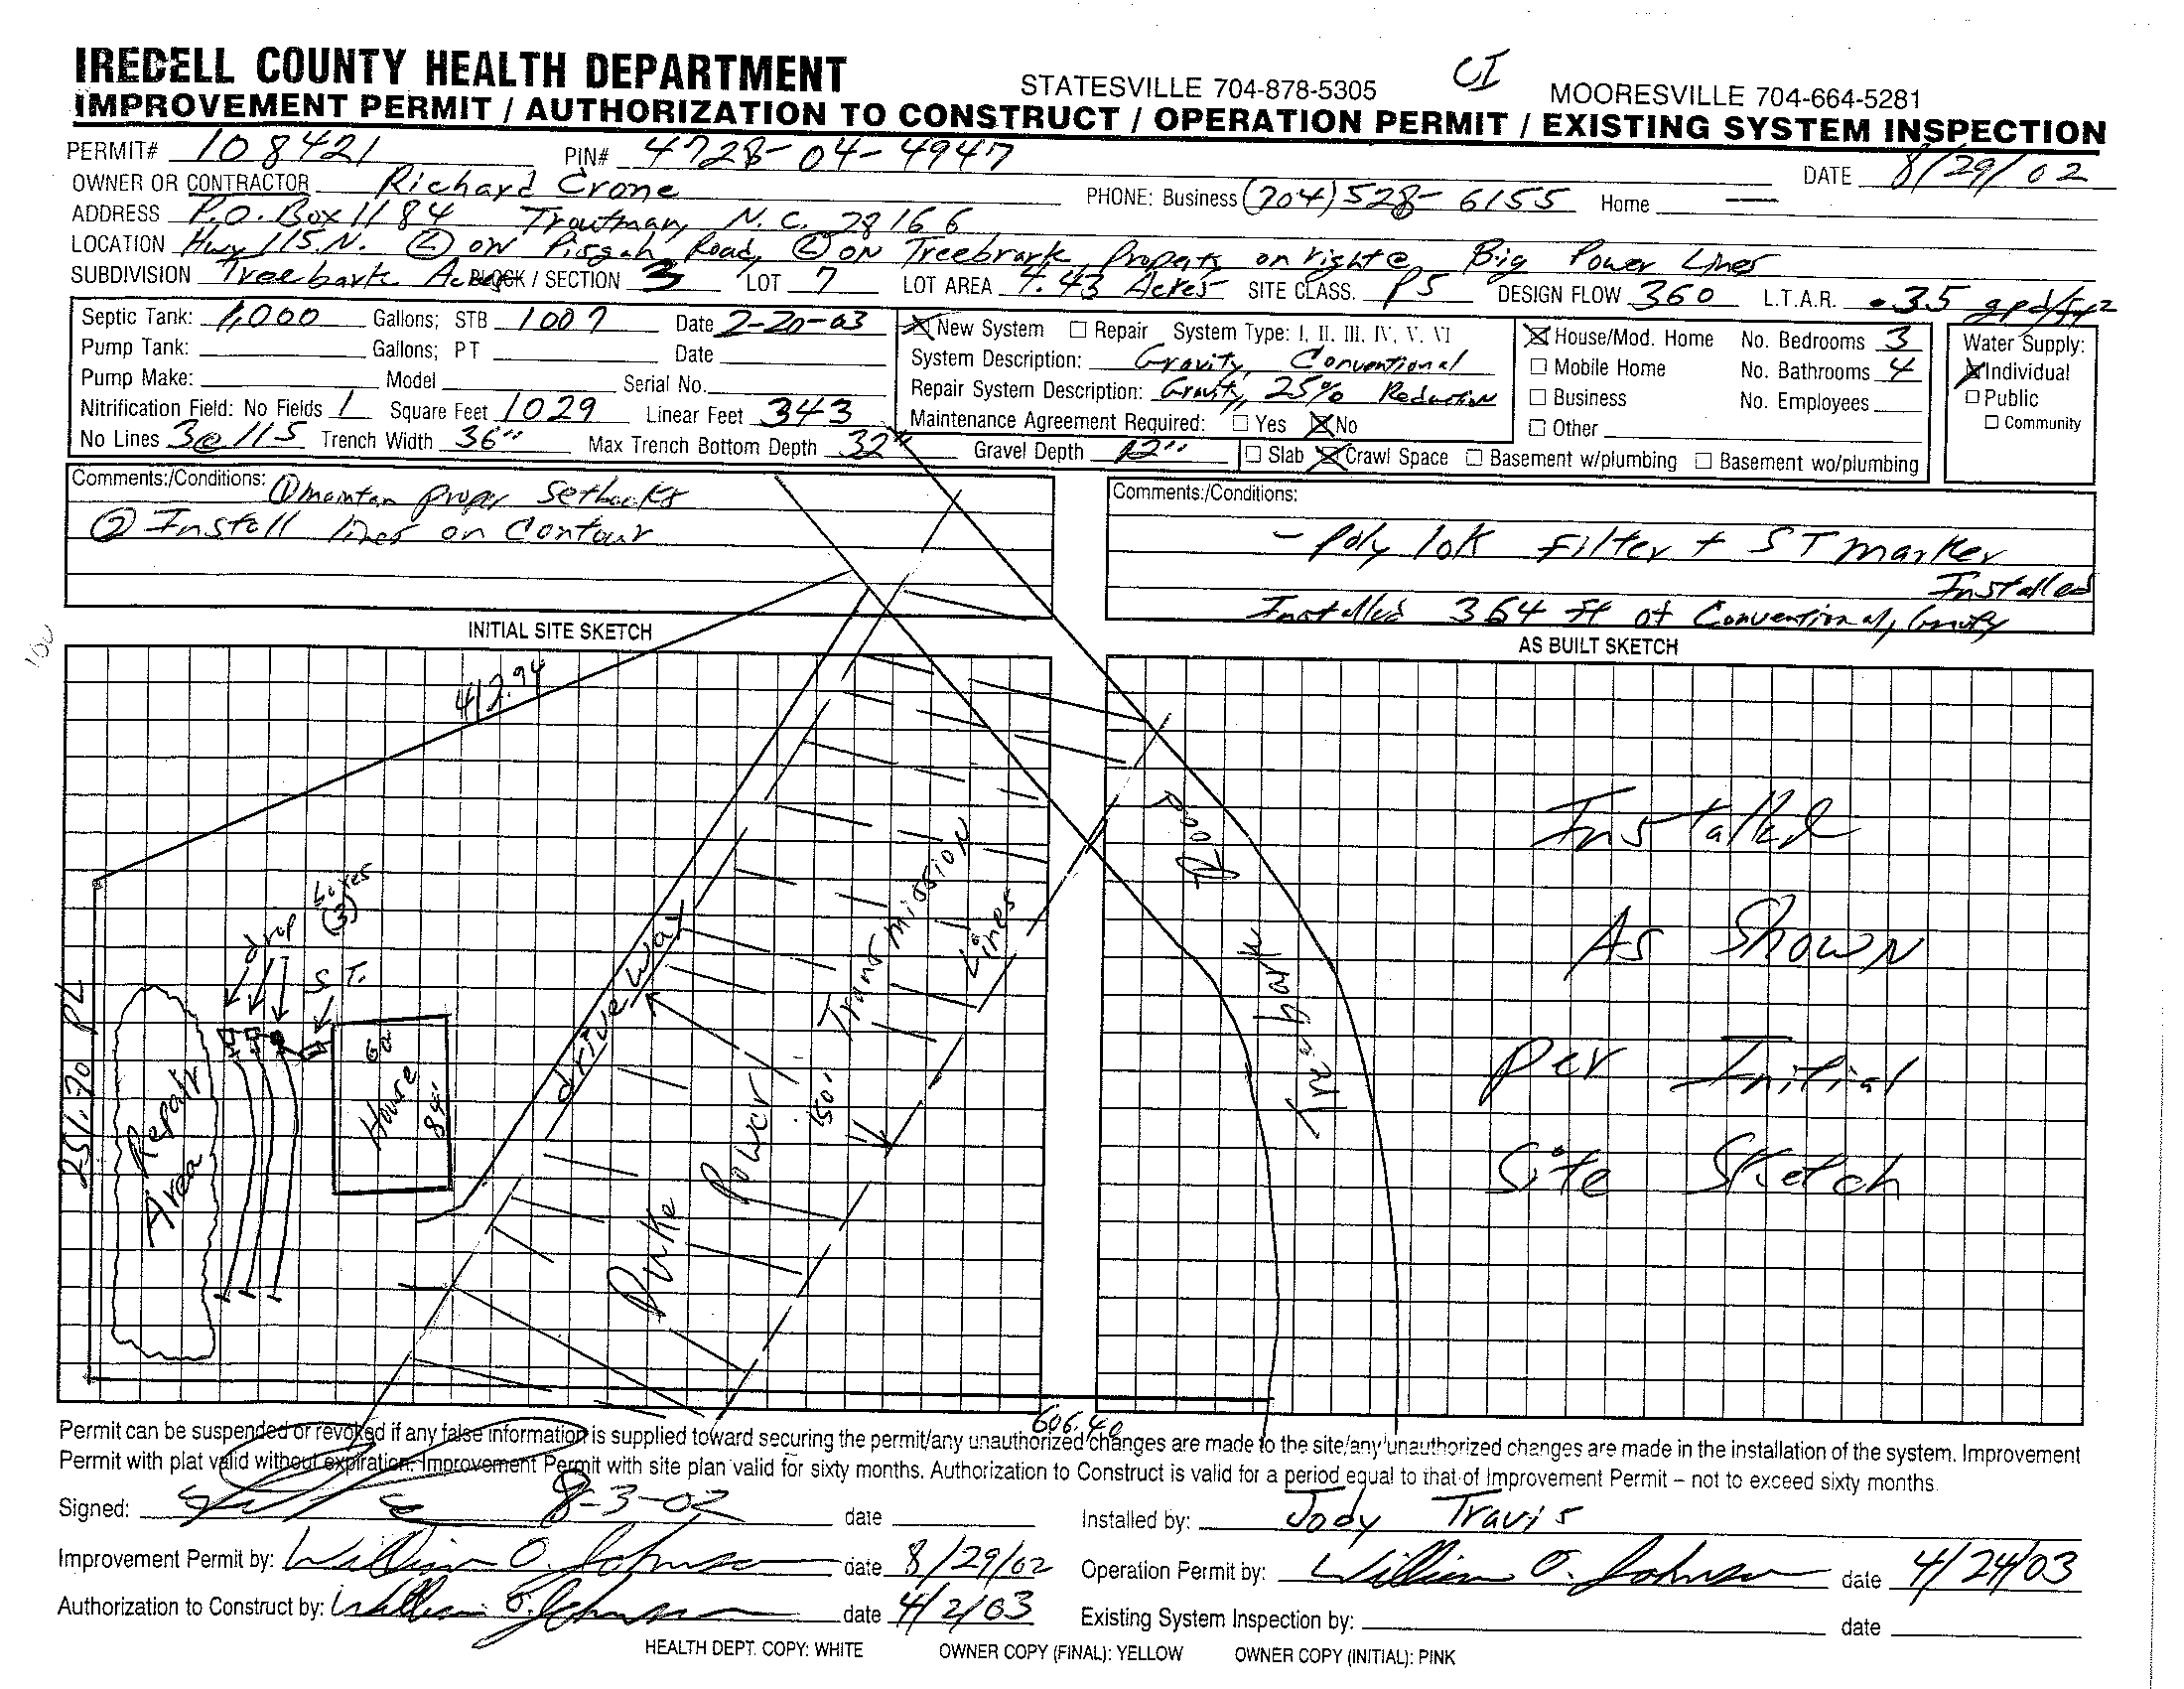 IREDELL COUNTY HEALTH DEPARTMENT STATESVILLE 704-878-5305 CI MOORESVILLE 704-664-5281
IMPROVEMENT PERMIT / AUTHORIZATION TO CONSTRUCT / OPERATION PERMIT / EXISTING SYSTEM INSPECTION
PERMIT# 108421 PIN# 4728-04-4947 DATE 8/29/02
OWNER OR CONTRACTOR Richard Crone PHONE: Business (704) 528-6155 Home —
ADDRESS P.O. Box 1184 Troutman, N.C. 28166
LOCATION Hwy 115 N. (L) on Pisgah Road, (L) on Treebark, Property on right @ Big Power Lines
SUBDIVISION Treebark Acres BLOCK / SECTION 3 LOT 7 LOT AREA 4.43 Acres SITE CLASS. PS DESIGN FLOW 360 L.T.A.R. .35 gpd/ft²
Septic Tank: 1,000 Gallons; STB 1007 Date 2-20-03
Pump Tank: Gallons; PT Date
Pump Make: Model Serial No.
Nitrification Field: No Fields 1 Square Feet 1029 Linear Feet 343
No Lines 3@115 Trench Width 36" Max Trench Bottom Depth 32" Gravel Depth 12"
☒ New System ☐ Repair System Type: I, II, III, IV, V, VI
System Description: Gravity, Conventional
Repair System Description: Gravity, 25% Reduction
Maintenance Agreement Required: ☐ Yes ☒ No
☐ Slab ☒ Crawl Space ☐ Basement w/plumbing ☐ Basement wo/plumbing
☒ House/Mod. Home No. Bedrooms 3
☐ Mobile Home No. Bathrooms 4
☐ Business No. Employees
☐ Other
Water Supply:
☒ Individual
☐ Public
☐ Community
Comments:/Conditions: ① maintan proper setbacks
② Install lines on Contour
Comments:/Conditions:
- Poly lok Filter + ST marker
Installed
Installed 364 ft of Conventional, Gravity
100
INITIAL SITE SKETCH
412.94
drop boxes
(3)
S.T.
251.70 PL
Repair
Area
House
84'
driveway
Duke Power
150'
Transmission
Lines
Treebark Road
606.40
AS BUILT SKETCH
Installed
As Shown
Per Initial
Site Sketch
Permit can be suspended or revoked if any false information is supplied toward securing the permit/any unauthorized changes are made to the site/any unauthorized changes are made in the installation of the system. Improvement
Permit with plat valid without expiration. Improvement Permit with site plan valid for sixty months. Authorization to Construct is valid for a period equal to that of Improvement Permit – not to exceed sixty months.
Signed: 8-3-02 date
Installed by: Jody Travis
Improvement Permit by: William O. Johnson date 8/29/02
Operation Permit by: William O. Johnson date 4/24/03
Authorization to Construct by: William O. Johnson date 4/2/03
Existing System Inspection by: date
HEALTH DEPT. COPY: WHITE OWNER COPY (FINAL): YELLOW OWNER COPY (INITIAL): PINK